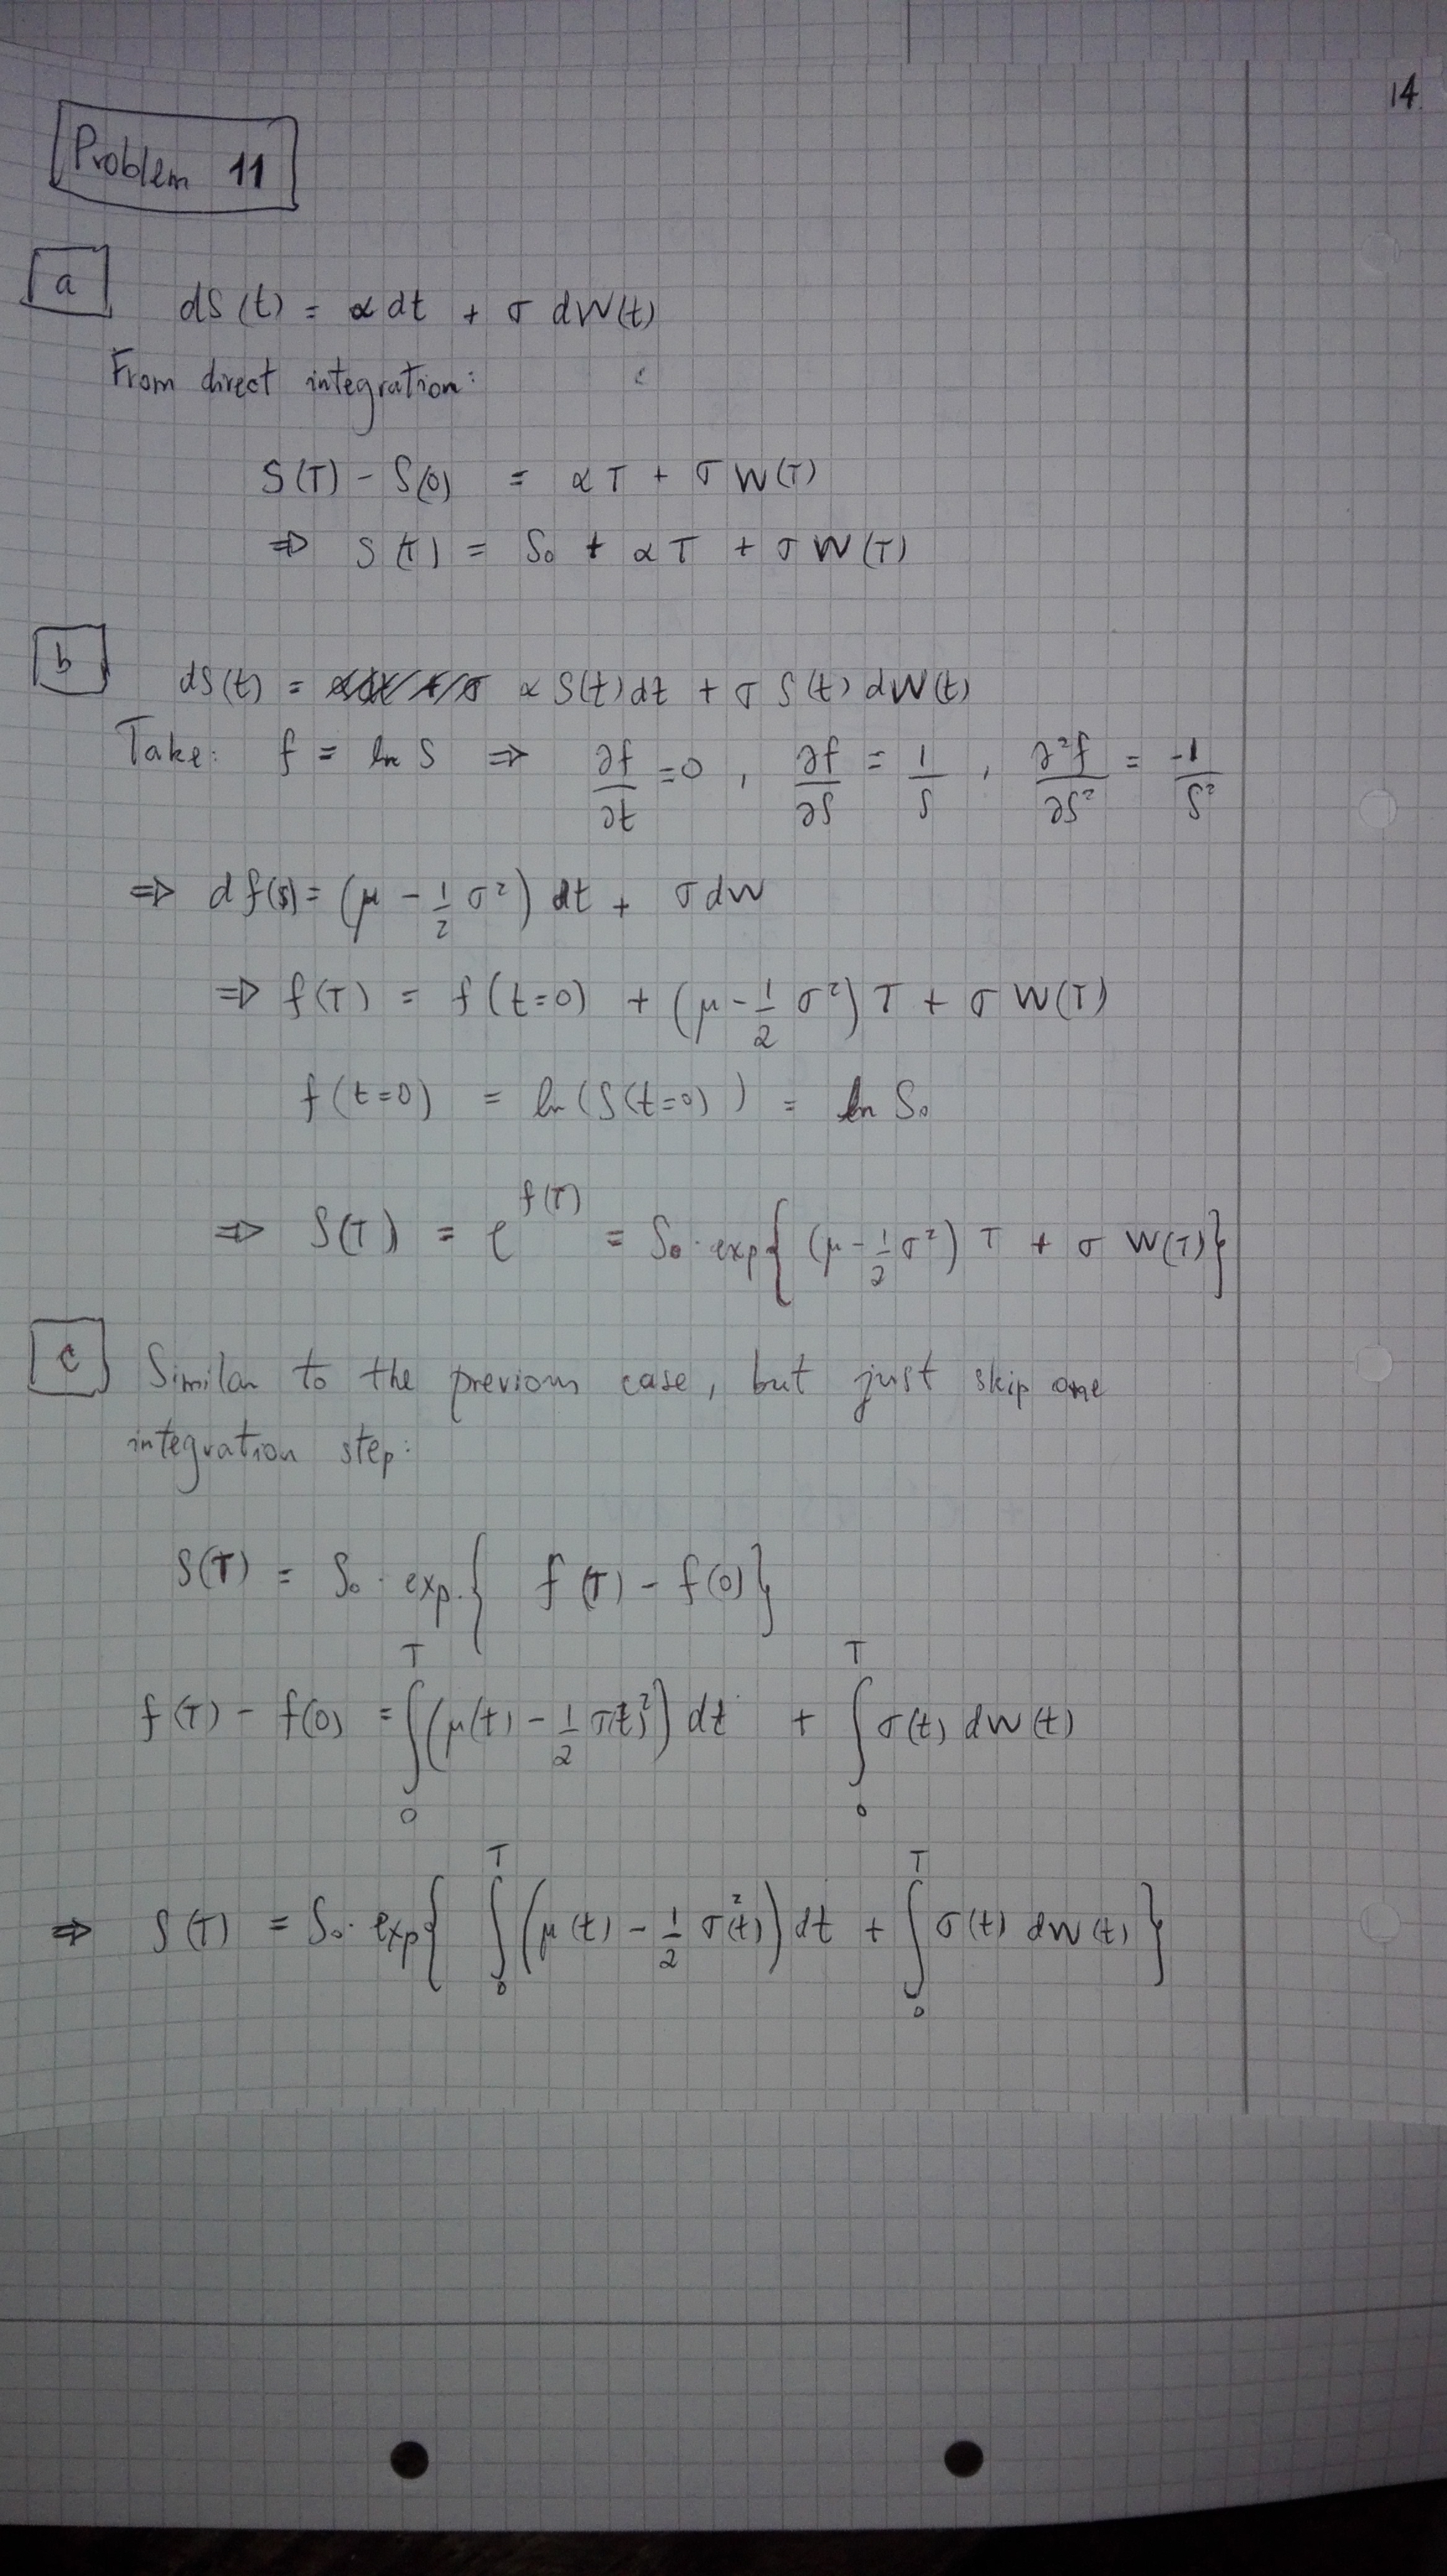 14.
Problem 11
a
dS(t) = α dt + σ dW(t)
From direct integration:
S(T) - S(0) = αT + σ W(T)
⇒ S(T) = S₀ + αT + σ W(T)
b
dS(t) = α S(t) dt + σ S(t) dW(t)
Take: f = ln S ⇒ ∂f/∂t = 0 , ∂f/∂S = 1/S , ∂²f/∂S² = -1/S²
⇒ df(S) = (μ - 1/2 σ²) dt + σ dW
⇒ f(T) = f(t=0) + (μ - 1/2 σ²) T + σ W(T)
f(t=0) = ln(S(t=0)) = ln S₀
⇒ S(T) = e^f(T) = S₀ · exp{ (μ - 1/2 σ²) T + σ W(T) }
c
Similar to the previous case, but just skip one
integration step:
S(T) = S₀ · exp.{ f(T) - f(0) }
f(T) - f(0) = ∫₀ᵀ (μ(t) - 1/2 σ(t)²) dt + ∫₀ᵀ σ(t) dW(t)
⇒ S(T) = S₀ · exp{ ∫₀ᵀ (μ(t) - 1/2 σ²(t)) dt + ∫₀ᵀ σ(t) dW(t) }